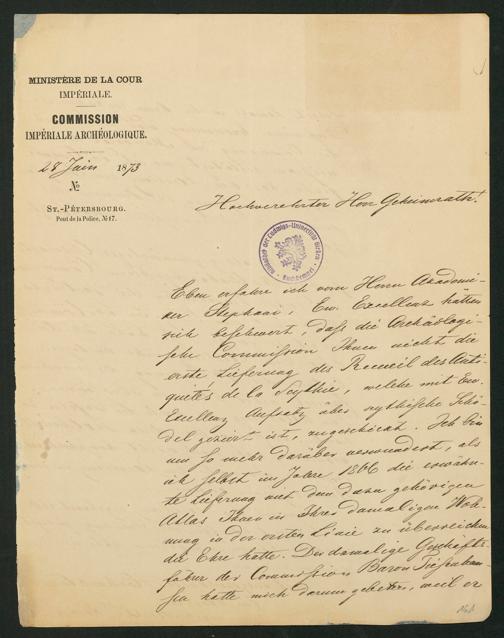 MINISTÈRE DE LA COUR
IMPÉRIALE.
COMMISSION
IMPÉRIALE ARCHÉOLOGIQUE.
28 Juin 1873
№
ST.-PÉTERSBOURG.
Pont de la Police, № 17.
Hochverehrter Herr Geheimrath!
Bibliothek der Ludwigs-Universität Giessen
Eben erfahre ich vom Herrn Akademi-
ker Stephani, Ew. Excellenz hätten
sich beschwert, daß die Archäologi-
sche Commission Ihnen nicht die
erste Lieferung des Recueil des Anti-
quités de la Scythie, welche mit Ew.
Excellenz Aufsatz über scythische Schä-
del geziert ist, zugeschickt. Ich bin
um so mehr darüber verwundert, als
ich selbst im Jahre 1866 die erwähn-
te Lieferung mit dem dazu gehörigen
Atlas Ihnen in Ihrer damaligen Woh-
nung in der ersten Linie zu überreichen
die Ehre hatte. Der damalige Geschäfts-
führer der Commission Baron Tiesenhau-
sen hatte mich darum gebeten, weil er